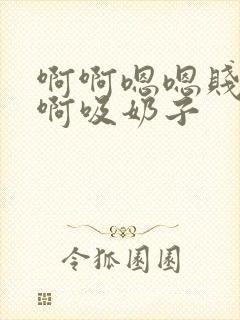 啊啊嗯嗯贱
啊吸奶子
令狐圈圈